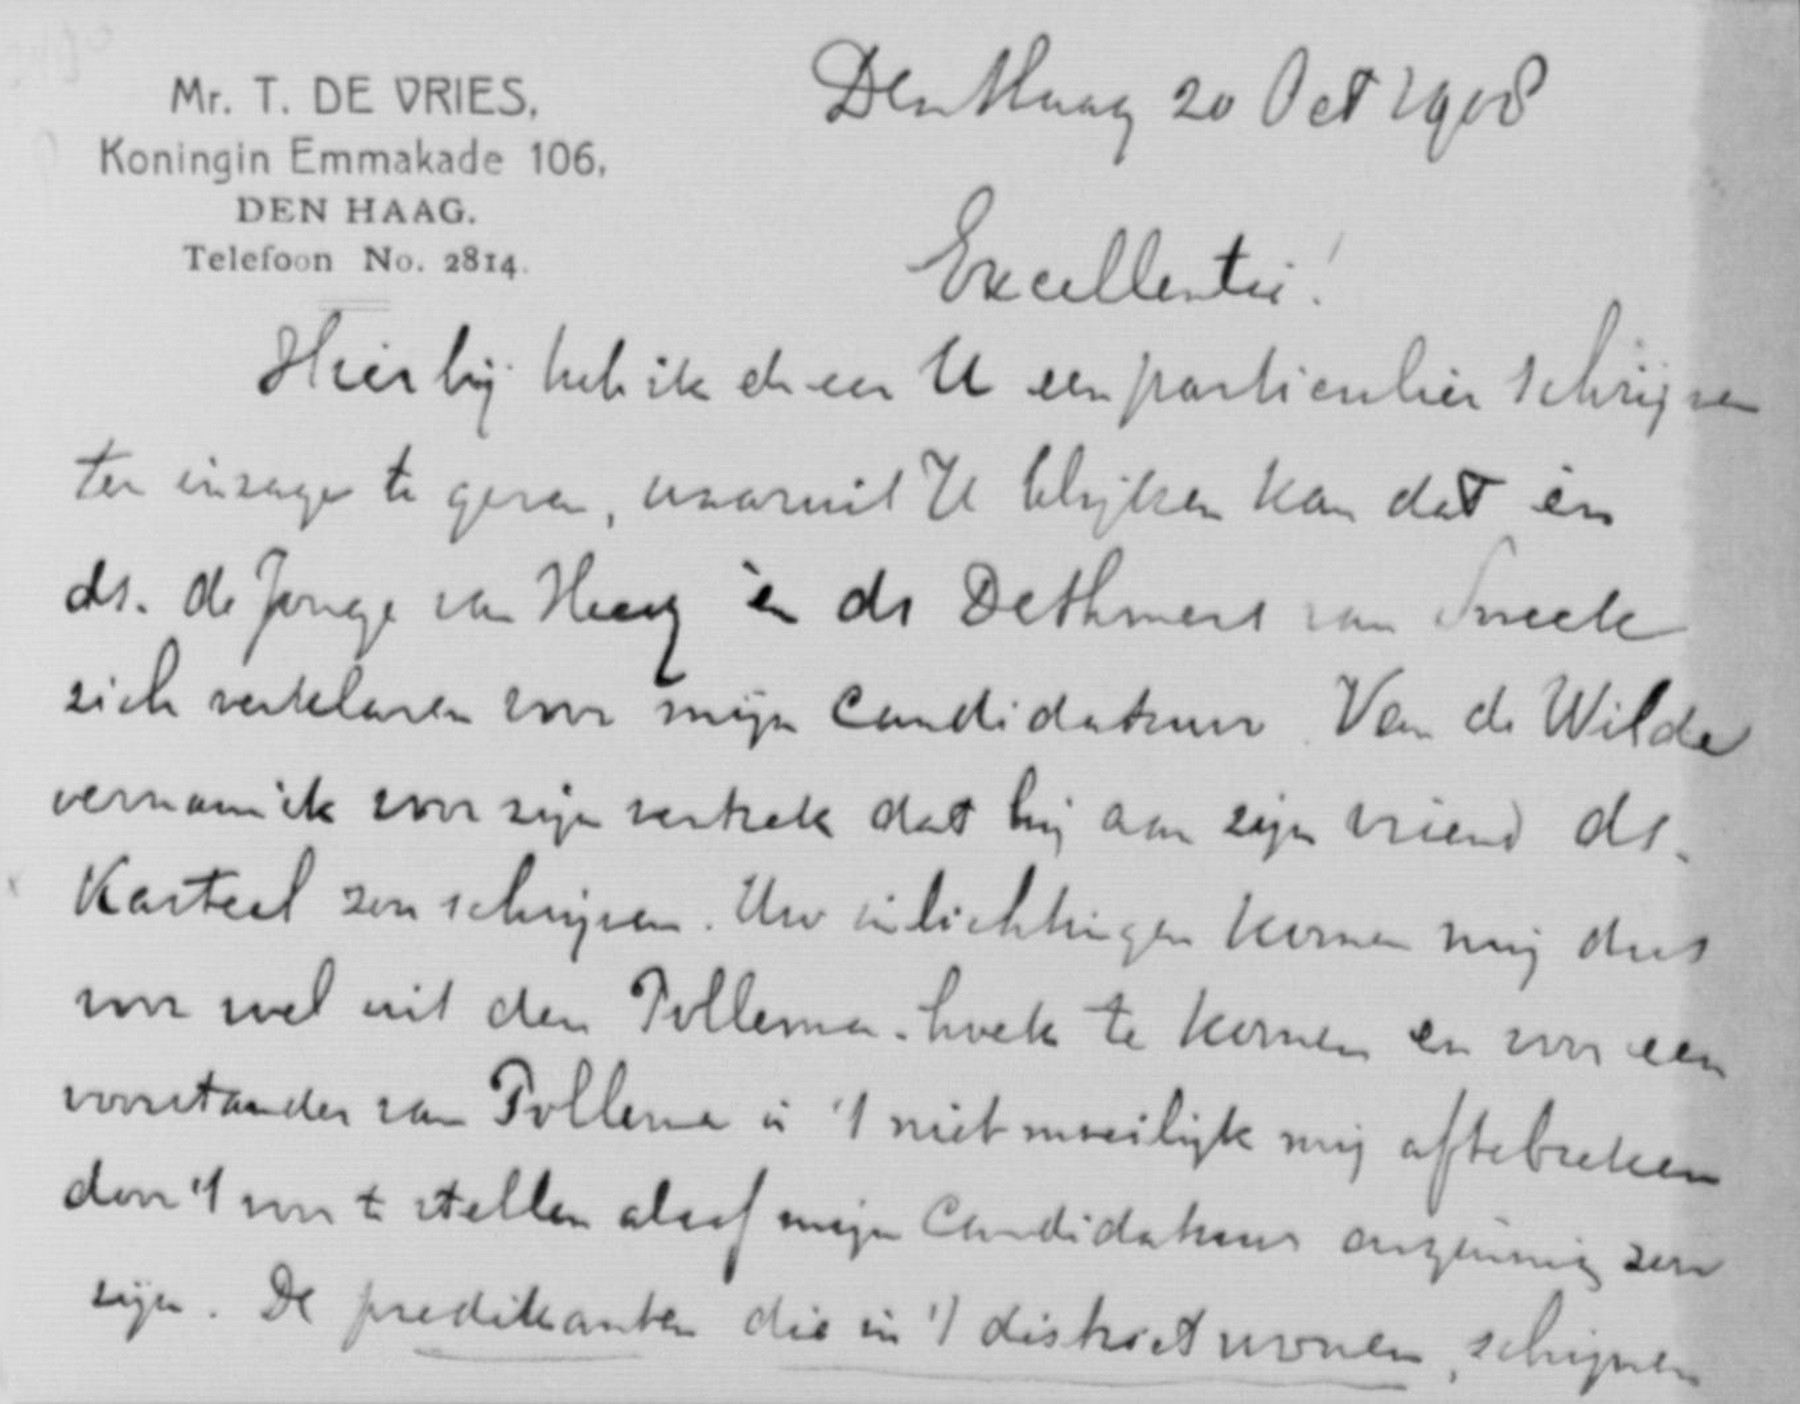 Mr. T. DE VRIES,
Koningin Emmakade 106,
DEN HAAG.
Telefoon No. 2814.
Den Haag 20 Oct 1908
Excellentie!
Hierbij heb ik de eer U een particulier schrijven
ter inzage te geven, waaruit U blijken kan dat èn
ds. de Jonge van Heeg èn ds Dethmers van Sneek
zich verklaren voor mijn candidatuur. Van de Wilde
vernam ik voor zijn vertrek dat hij aan zijn vriend ds.
Kasteel zou schrijven. Uw inlichtingen komen mij dus
voor wel uit den Pollema-hoek te komen en voor een
voorstander van Pollema is 't niet moeilijk mij aftebreken
door 't voor te stellen alsof mijn candidatuur onzinnig zou
zijn. De predikanten die in 't district wonen, schijnen